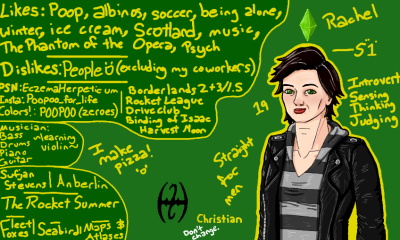 Likes: Poop, albinos, soccer, being alone,
winter, ice cream, Scotland, music,
The Phantom of the Opera, Psych
Dislikes: People (excluding my coworkers)
PSN: EczemaHerpeticum
Insta: Poopoo_for_life
Colors!: P000P00 (zeroes)
Borderlands 2+3/1.5
Rocket League
Driveclub
Binding of Isaac
Harvest Moon
Musician:
Bass
Drums
Piano
Guitar
learning
violin
Sufjan
Stevens
Anberlin
The Rocket Summer
Fleet
Foxes
Seabird
Maps &
Atlases
I
make
pizza!
Christian
Don't
change.
Straight
for
men
19
Rachel
5'1"
Introvert
Sensing
Thinking
Judging